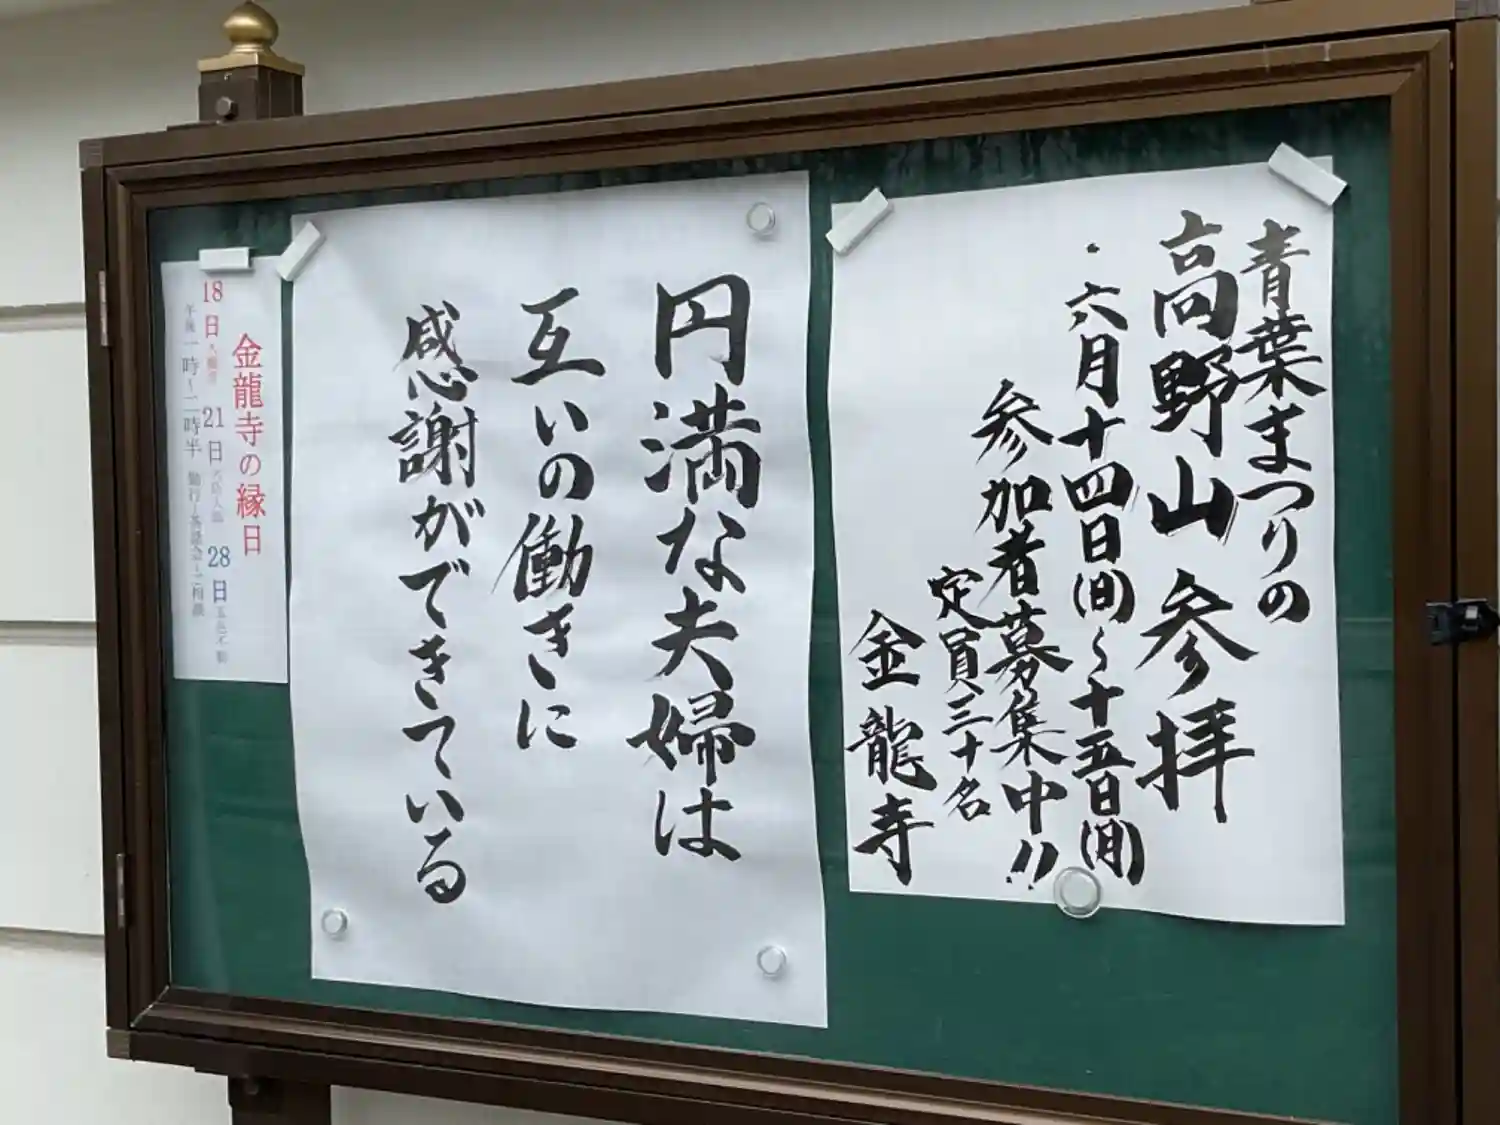 青葉まつりの
高野山参拝
・六月十四日(日)〜十五日(月)
参加者募集中!!
定員三十名
金龍寺
円満な夫婦は
互いの働きに
感謝ができている
金龍寺の縁日
18日 21日 28日
午後一時〜二時半 勤行〜茶話会〜ご相談